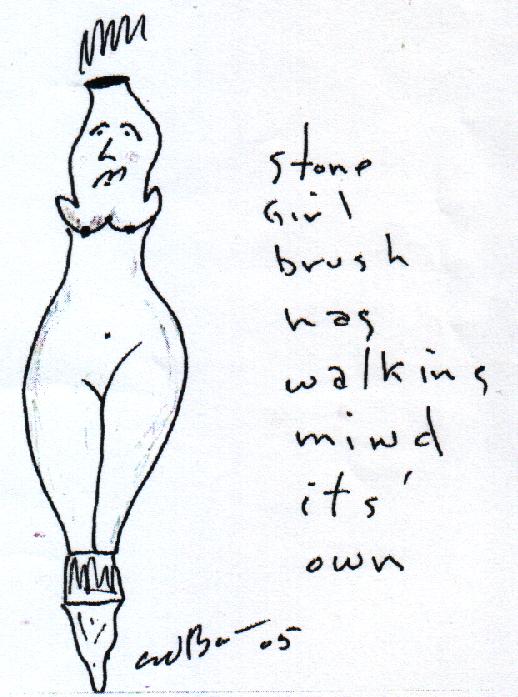 stone
Girl
brush
has
walking
mind
its'
own
05